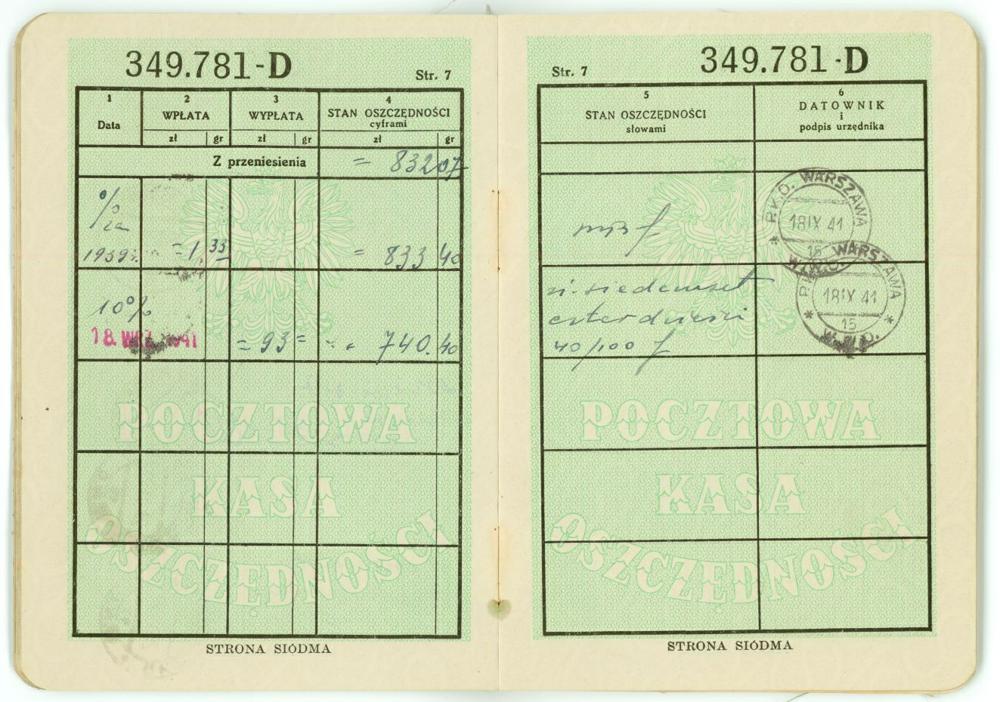 349.781-D
Str. 7
1
Data
2
WPŁATA
zł gr
3
WYPŁATA
zł gr
4
STAN OSZCZĘDNOŚCI
cyframi
zł gr
Z przeniesienia = 832 07
% za
1939 r. = 1 33 = 833 40
10%
18. WRZ. 1941 = 93 = 740. 40
POCZTOWA
KASA
OSZCZĘDNOŚCI
STRONA SIÓDMA
Str. 7
349.781-D
5
STAN OSZCZĘDNOŚCI
słowami
6
DATOWNIK
i
podpis urzędnika
P.K.O. WARSZAWA
18 IX 41
15
W.W.O.
zł. siedemset
czterdzieści
40/100
WARSZAWA
18 IX 41
15
POCZTOWA
KASA
OSZCZĘDNOŚCI
STRONA SIÓDMA